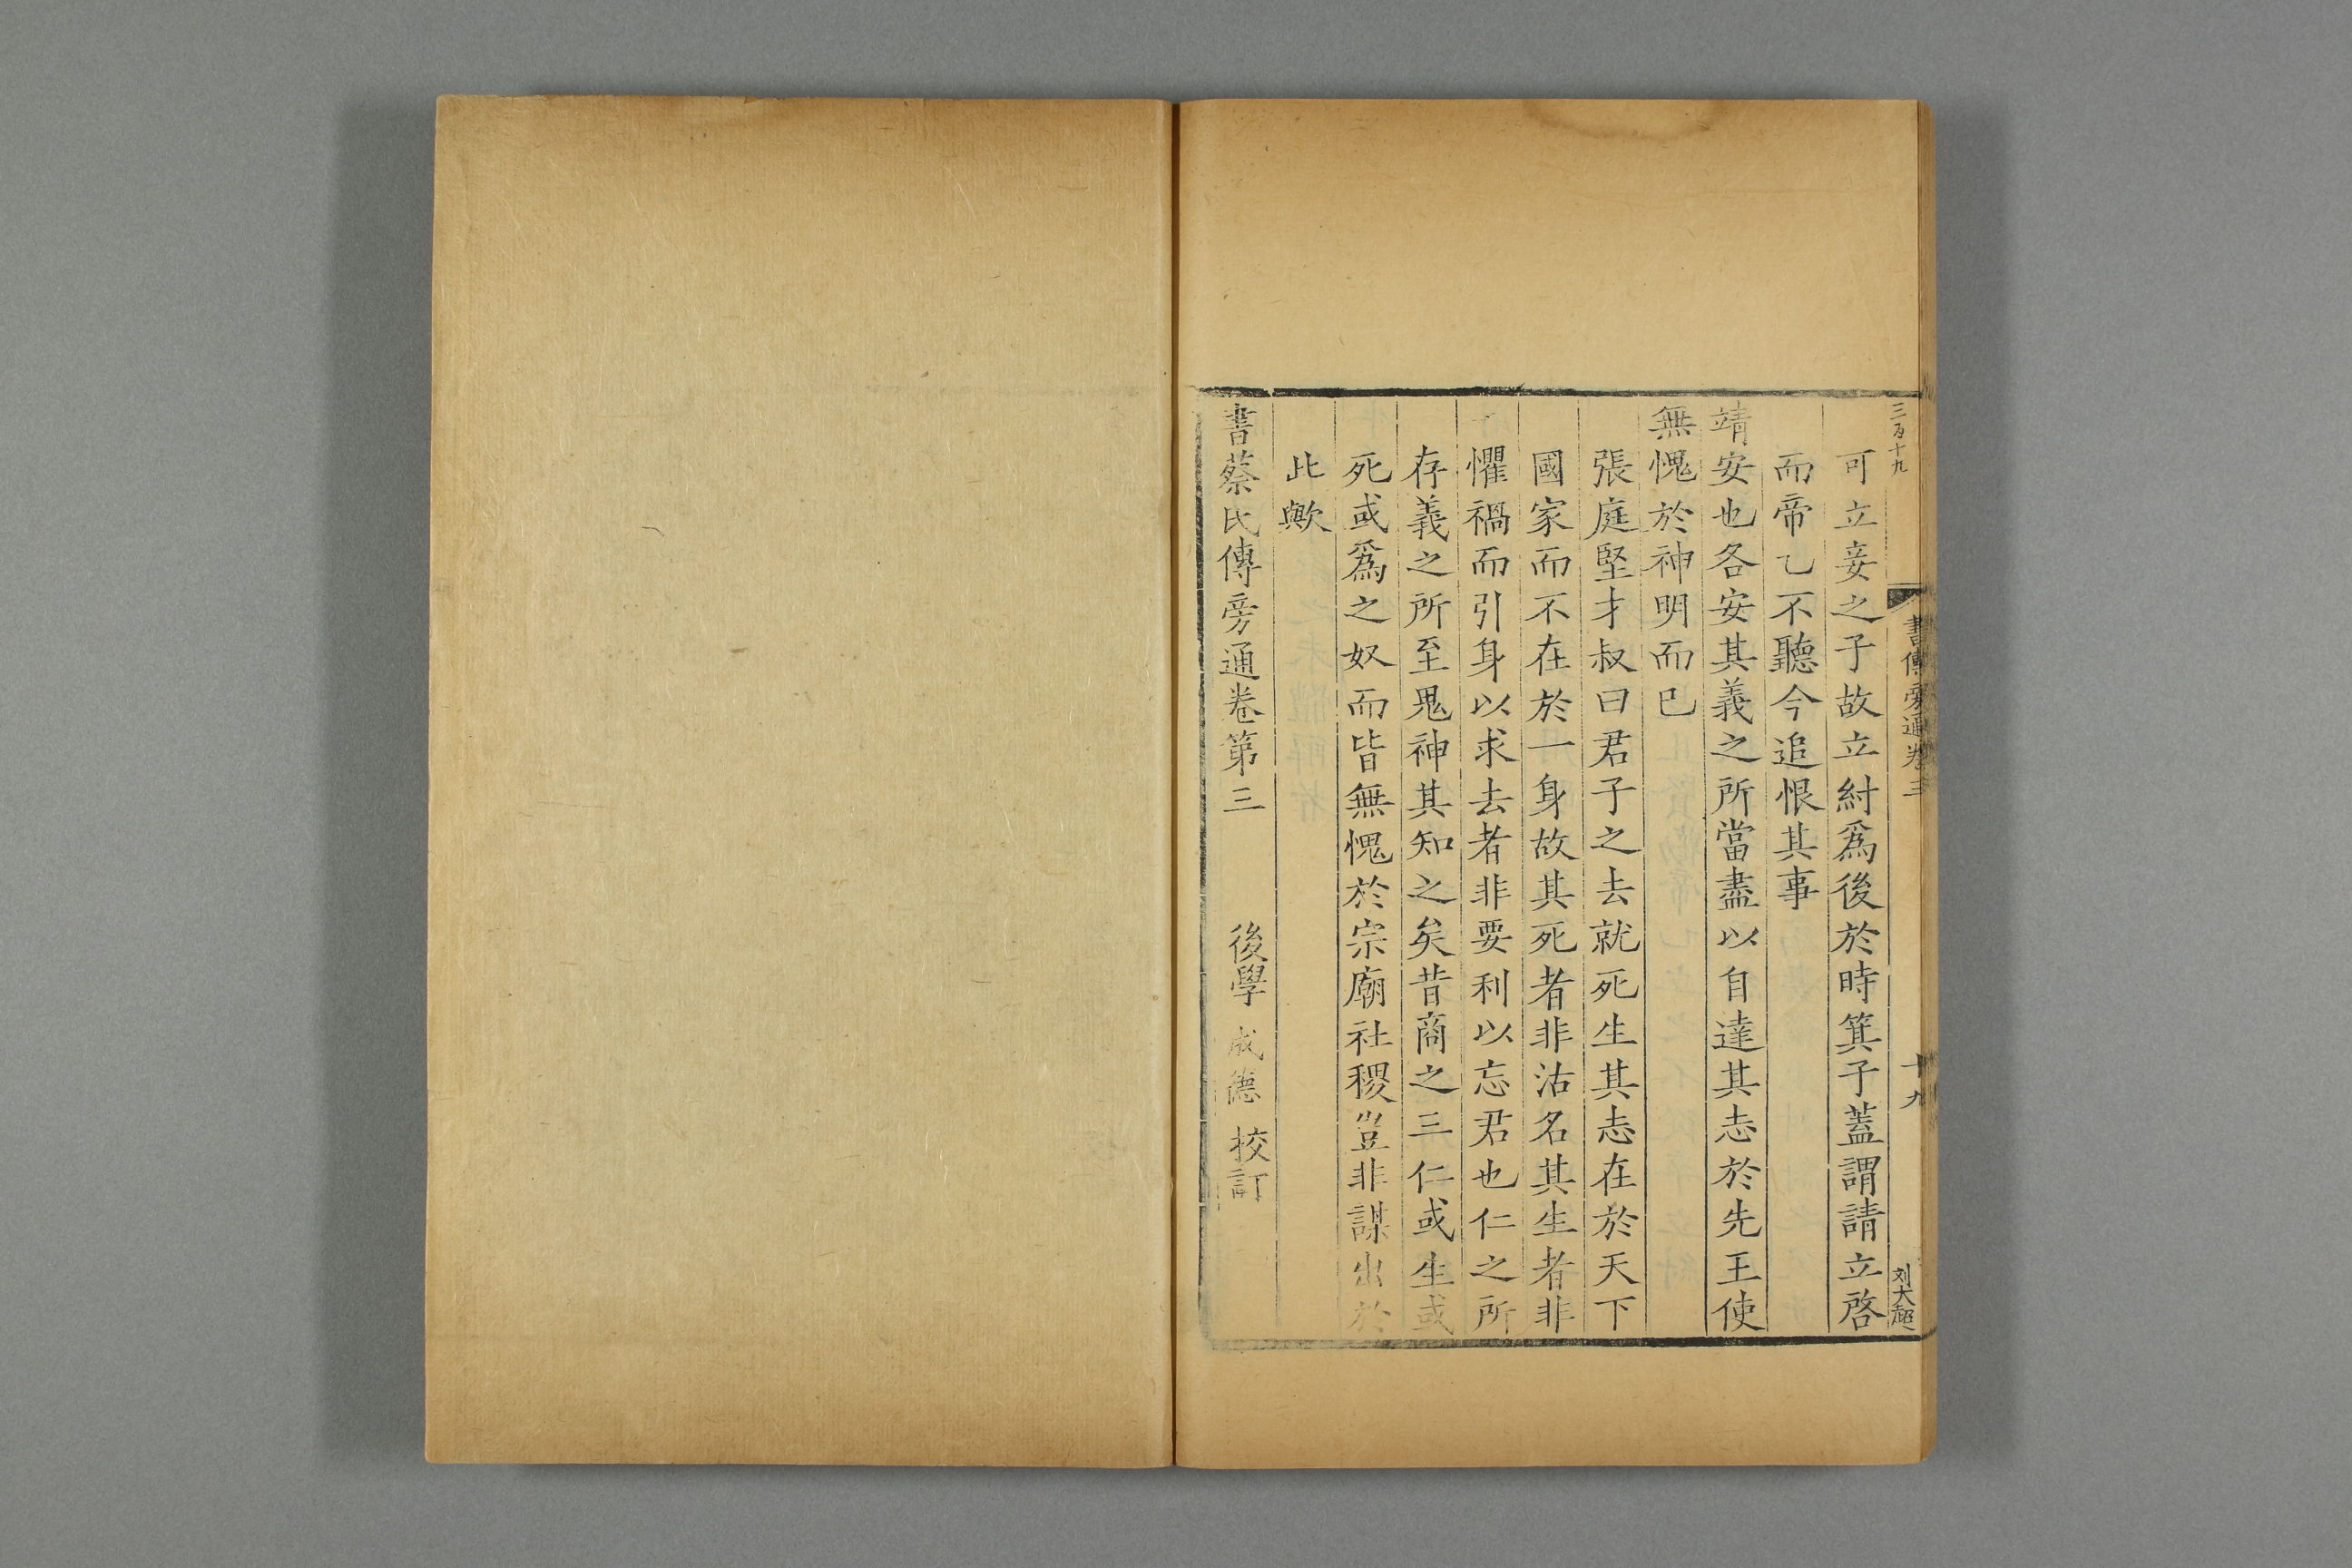 三百十九
書傳旁通卷三
十九
刘大超
可立妾之子故立紂爲後於時箕子蓋謂請立啓
而帝乙不聽今追恨其事
靖安也各安其義之所當盡以自達其志於先王使
無愧於神明而已
張庭堅才叔曰君子之去就死生其志在於天下
國家而不在於一身故其死者非沽名其生者非
懼禍而引身以求去者非要利以忘君也仁之所
存義之所至鬼神其知之矣昔商之三仁或生或
死或爲之奴而皆無愧於宗廟社稷豈非謀出於
此歟
書蔡氏傳旁通卷第三 後學 成德 校訂